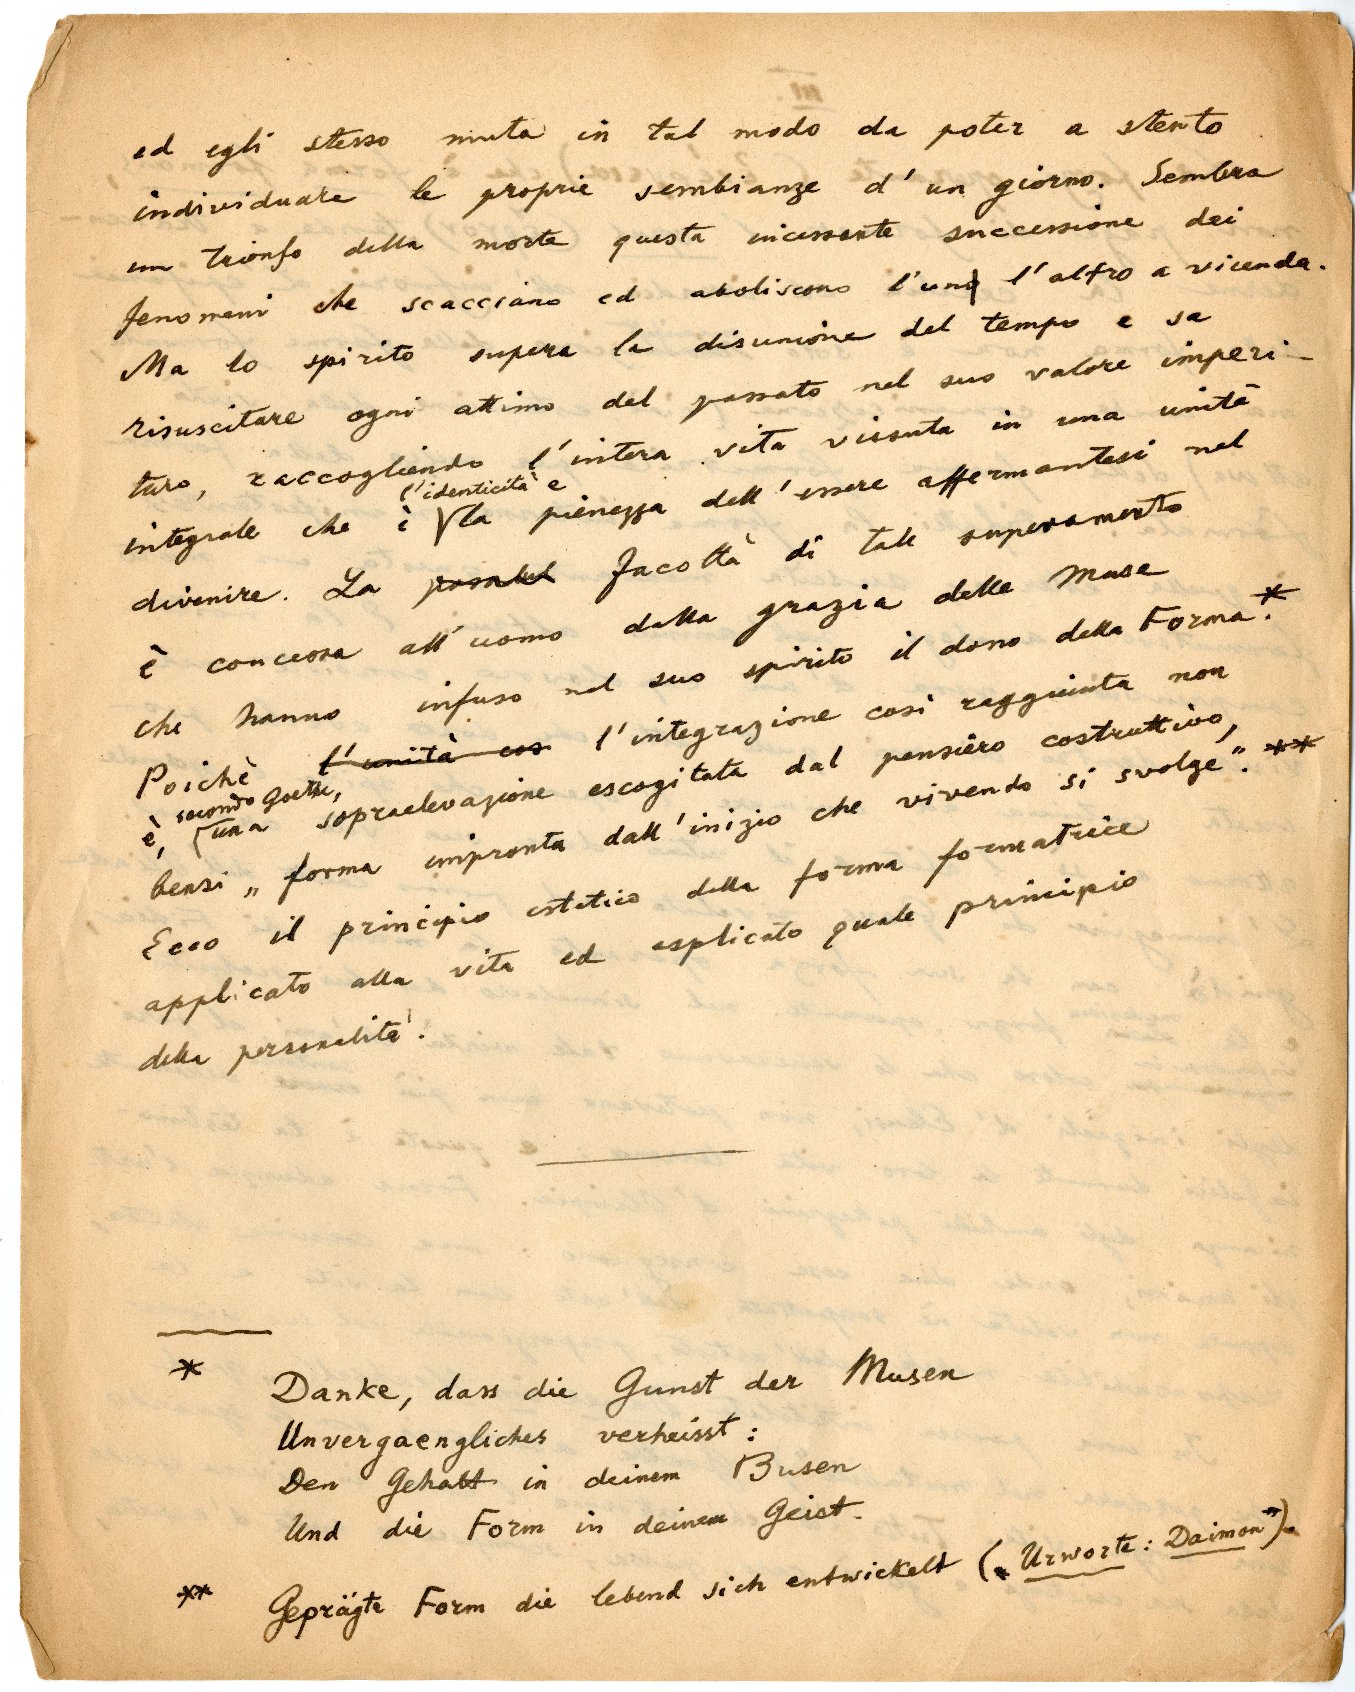 ed egli stesso muta in tal modo da poter a stento
individuare le proprie sembianze d'un giorno. Sembra
un trionfo della morte questa incessante successione dei
fenomeni che scacciano ed aboliscono l'uno l'altro a vicenda.
Ma lo spirito supera la disunione del tempo e sa
risuscitare ogni attimo del passato nel suo valore imperi-
turo, raccogliendo l'intera vita vissuta in una unità
l'identicità e
integrale che è la pienezza dell'essere affermantesi nel
divenire. La facoltà di tale superamento
è concessa all'uomo dalla grazia delle Muse
che hanno infuso nel suo spirito il dono della Forma.*
Poichè l'unità cos l'integrazione così raggiunta non
secondo Goethe,
è, una sopraelevazione escogitata dal pensiero costruttivo,
bensì „forma impronta dall'inizio che vivendo si svolge". **
Ecco il principio estetico della forma formatrice
applicato alla vita ed esplicato quale principio
della personalità.
* Danke, dass die Gunst der Musen
Unvergaengliches verheisst:
Den Gehalt in deinem Busen
Und die Form in deinem Geist.
** Geprägte Form die lebend sich entwickelt („Urworte: Daimon").